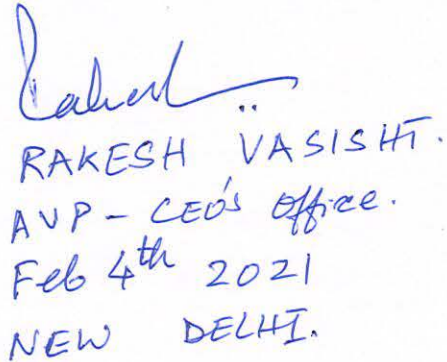 Rakesh
RAKESH VASISHT.
AVP - CEO's office.
Feb 4th 2021
NEW DELHI.